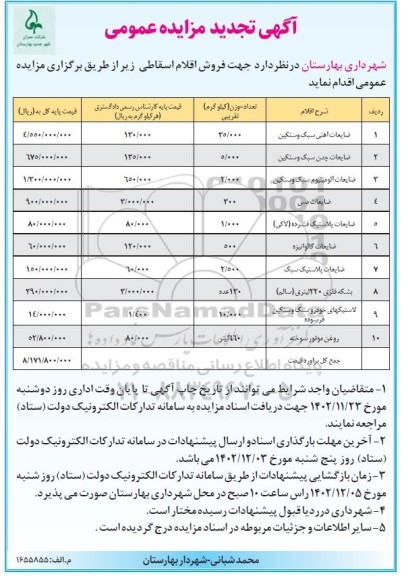 شرکت عمران
شهر جدید بهارستان
آگهی تجدید مزایده عمومی
شهرداری بهارستان درنظردارد جهت فروش اقلام اسقاطی زیر از طریق برگزاری مزایده
عمومی اقدام نماید
ردیف شرح اقلام تعداد-وزن(کیلو گرم) تقریبی قیمت پایه کارشناس رسمی دادگستری (هر کیلو گرم به ریال) قیمت پایه کل به (ریال)
۱ ضایعات آهنی سبک وسنگین ۳۵/۰۰۰ ۱۳۰/۰۰۰ ۴/۵۵۰/۰۰۰/۰۰۰
۲ ضایعات چدن سبک وسنگین ۵/۰۰۰ ۱۳۵/۰۰۰ ۶۷۵/۰۰۰/۰۰۰
۳ ضایعات آلومینیوم سبک وسنگین ۲/۰۰۰ ۶۵۰/۰۰۰ ۱/۳۰۰/۰۰۰/۰۰۰
۴ ضایعات مس ۳۰۰ ۳/۰۰۰/۰۰۰ ۹۰۰/۰۰۰/۰۰۰
۵ ضایعات پلاستیک فشرده (لاکی) ۱/۰۰۰ ۸۰/۰۰۰ ۸۰/۰۰۰/۰۰۰
۶ ضایعات گالوانیزه ۵۰۰ ۱۲۰/۰۰۰ ۶۰/۰۰۰/۰۰۰
۷ ضایعات پلاستیک سبک ۲/۵۰۰ ۶۰/۰۰۰ ۱۵۰/۰۰۰/۰۰۰
۸ بشکه فلزی ۲۲۰لیتری (سالم) ۱۳۰عدد ۳/۰۰۰/۰۰۰ ۳۹۰/۰۰۰/۰۰۰
۹ لاستیکهای خودرو سبک وسنگین فرسوده ۱۰/۰۰۰ ۱/۴۰۰ ۱۴/۰۰۰/۰۰۰
۱۰ روغن موتور سوخته ۶۶۰لیتر ۸۰/۰۰۰ ۵۲/۸۰۰/۰۰۰
جمع کل برآورد قیمت ۸/۱۷۱/۸۰۰/۰۰۰
ParsNamadData
پایگاه اطلاع رسانی مناقصه و مزایده
۱- متقاضیان واجد شرایط می توانند از تاریخ چاپ آگهی تا پایان وقت اداری روز دوشنبه
مورخ ۱۴۰۲/۱۱/۲۳ جهت دریافت اسناد مزایده به سامانه تدارکات الکترونیک دولت (ستاد)
مراجعه نمایند.
۲- آخرین مهلت بارگذاری اسنادو ارسال پیشنهادات در سامانه تدارکات الکترونیک دولت
(ستاد) روز پنج شنبه مورخ ۱۴۰۲/۱۲/۰۳ می باشد.
۳- زمان بازگشایی پیشنهادات از طریق سامانه تدارکات الکترونیک دولت (ستاد) روز شنبه
مورخ ۱۴۰۲/۱۲/۰۵ راس ساعت ۱۰ صبح در محل شهرداری بهارستان صورت می پذیرد.
۴- شهرداری در رد یا قبول پیشنهادات رسیده مختار است.
۵- سایر اطلاعات و جزئیات مربوطه در اسناد مزایده درج گردیده است.
محمد شبانی-شهردار بهارستان
م.الف:۱۶۵۵۸۵۵